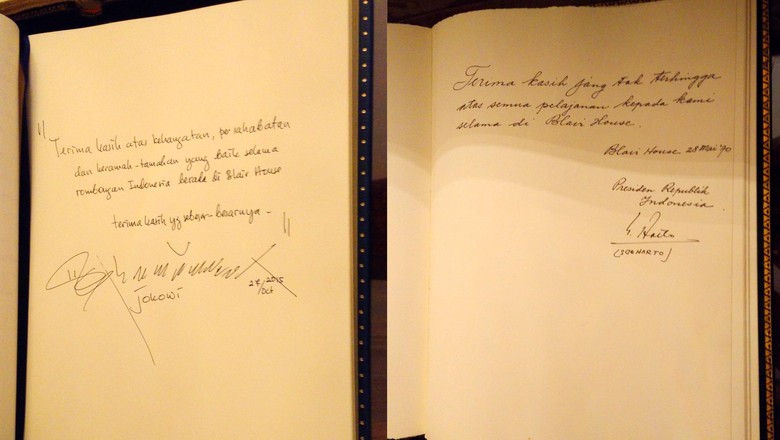 "Terima kasih atas kehangatan, persahabatan
dan keramah-tamahan yang baik selama
rombongan Indonesia berada di Blair House
terimakasih yg sebesar-besarnya - "
Jokowi
27/2015
Oct
Terima kasih jang tak terhingga
atas semua pelajanan kepada kami
selama di Blair House.
Blair House 28 Mei '70
Presiden Republik
Indonesia
(SOEHARTO)